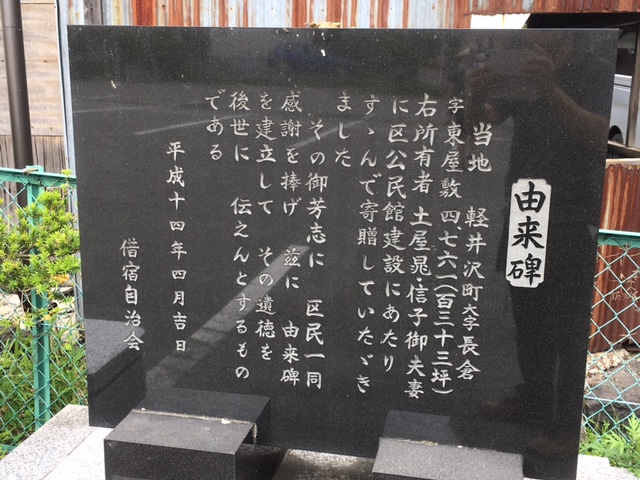 由来碑
当地 軽井沢町大字長倉
字東屋敷四、七六一(百三十三坪)
右所有者土屋晁信子御夫妻
に区公民館建設にあたり
すゝんで寄贈していたゞき
ました
その御芳志に 区民一同
感謝を捧げ 茲に 由来碑
を建立して その遺徳を
後世に 伝えんとするもの
である
平成十四年四月吉日
借宿自治会